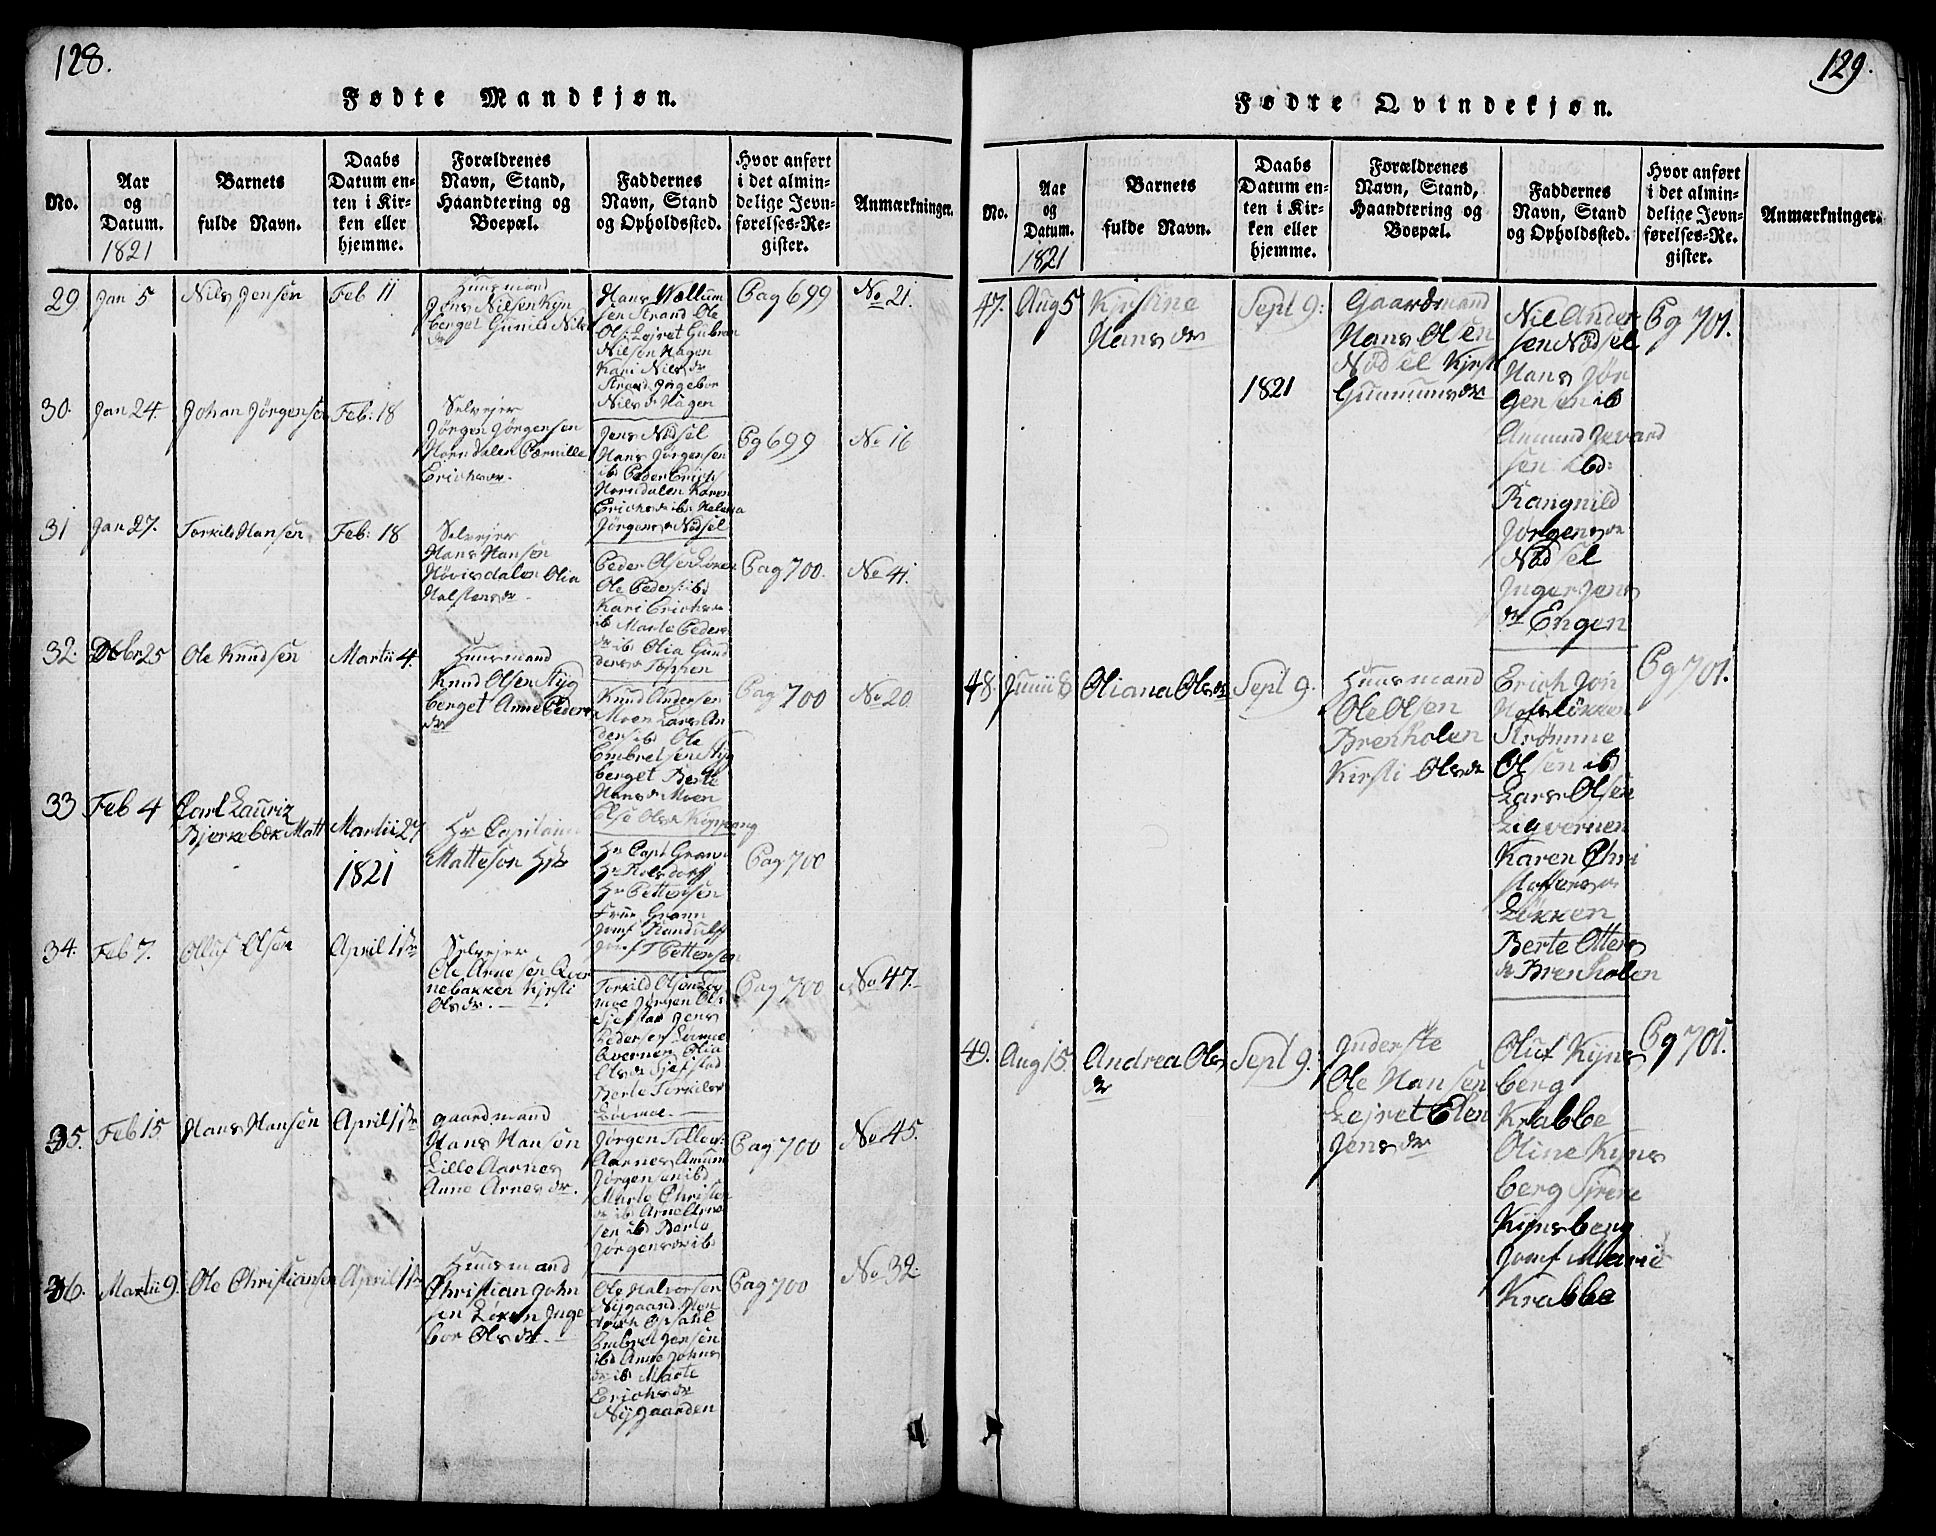 128.
Fødte Mandkjøn.
No.
Aar
og
Datum.
1821
Barnets
fulde Navn.
Daabs
Datum en-
ten i Kir-
ken eller
hjemme.
Forældrenes
Navn, Stand,
Haandtering og
Boepæl.
Faddernes
Navn, Stand
og Opholdssted.
Hvor anført
i det almin-
delige Jevn-
førelses-Re-
gister.
Anmærkninger.
29
Jan 5
Nils Jensen
Feb 11
Huusmand
Jens Nielsen Kyn
berget Gunild Nils
dr
Hans Wellum
sen Strand Ole
Ols: Lejret Gulbran
Nilsen Hagen
Kari Nilsdr
Strand Ingebor
Nilsdr Hagen
Pag 699
No 21.
30.
Jan 24
Johan Jørgensen
Feb: 18
Selvejer
Jørgen Jørgensen
Horndalen Pernille
Erichsdr.
Jens Nødsel
Hans Jørgensen
ib Peder Erichs
Horndalen Karen
Erichsdr ib Helena
Jørgensdr Nødsel
Pg 699
No 16
31
Jan 27.
Torkild Hansen
Feb: 18
Selvejer
Hans Hansen
Høvisdalen Olia
Halstensdr.
Peder Olsen
Ole Peders: ibd
Kari Erichsdr
ib Marte Peders
dr ib Olia Gund
dersdr Toppen
Pag 700.
No 41.
32.
Dcbr 25
Ole Knudsen
Martii 4.
Huusmand
Knud Olsen Styg
berget Anne Peders
dr
Knud Andersen
Moen Lars An
ders: ibd Ole
Embretsen Styg
berget Berte
Hansdr Moen
Else Olsdr
Pag 700
No 20.
33
Feb 4
Carl Lauriz
Bjerkebek Matt
Martii 27
1821
Hr Capitain
Matteson
Hr Capt Gram
Hr
Hr Pettersen
Frue Gram
Jomf
Jomf Pettersen
Pag 700
34.
Feb 7.
Olluf Olsen
April 1ste
Selvejer
Ole Arnesen Qver
nebakken Kjrsti
Olsdr.
Torkild Olsen
moe Jørgen Ols
Sjefstad Jens
Pedersen
Qvernen Olia
Olsdr Sjefstad
Berte Torkilsdr
Pag 700
No 47.
35.
Feb 15
Hans Hansen
April 1ste
gaardmand
Hans Hansen
Lille Aarnes
Anne Arnesdr.
Jørgen Tollevs:
Aarnes Amun
Jørgensen ibd
Marte Christo
dr ib Arne Arne
sen ibd Berte
Jørgensdr ibd
Pag 700
No 45.
36.
Martii 9.
Ole Christiansen
April 1ste
Huusmand
Christian John
sen Inge
bor Olsdr.
Ole Halvorsen
Nygaard Hen
drik Opsahl
Embret Jensen
ibd Anne Johns
dr ib Marte
Erichsdr
Nygaarden
Pag 700
No 32.
129.
Fødte Qvindekjøn.
No.
Aar
og
Datum.
1821
Barnets
fulde Navn.
Daabs
Datum en-
ten i Kir-
ken eller
hjemme.
Forældrenes
Navn, Stand,
Haandtering og
Boepæl.
Faddernes
Navn, Stand
og Opholdssted.
Hvor anført
i det almin-
delige Jevn-
førelses-Re-
gister.
Anmærkninger.
47.
Aug 5
Kjrstine
Hansdr
Sept 9:
1821
Gaardmand
Hans Olsen
Nødsel Kjrsti
Gunmunsdr
Nil Ander
sen Nødsel
Hans Jør
gensen ib
Amund Jevard
sen ibd:
Rangnild
Jørgensdr
Nødsel
Inger Jens
dr Engen
Pg 701.
48.
Junii 8
Oliana Olsdr
Sept 9.
Huusmand
Ole Olsen
Brenholen
Kirsti Olsdr
Erich Jon
Strømme
Olsen ib
Lars Olsen
Ligvernen
Karen Chri
stoffersdr
Løkken
Berte Otters
dr Brenholen
Pg 701.
49.
Aug 15.
Andrea Ols
dr
Sept 9:
Inderste
Ole Hansen
Lejret Elen
Jensdr
Oluf Kyns
berg
Krabbe
Oline Kyns
berg Sjrere
Kynsberg
Jomf Marie
Krabbe
Pg 701.